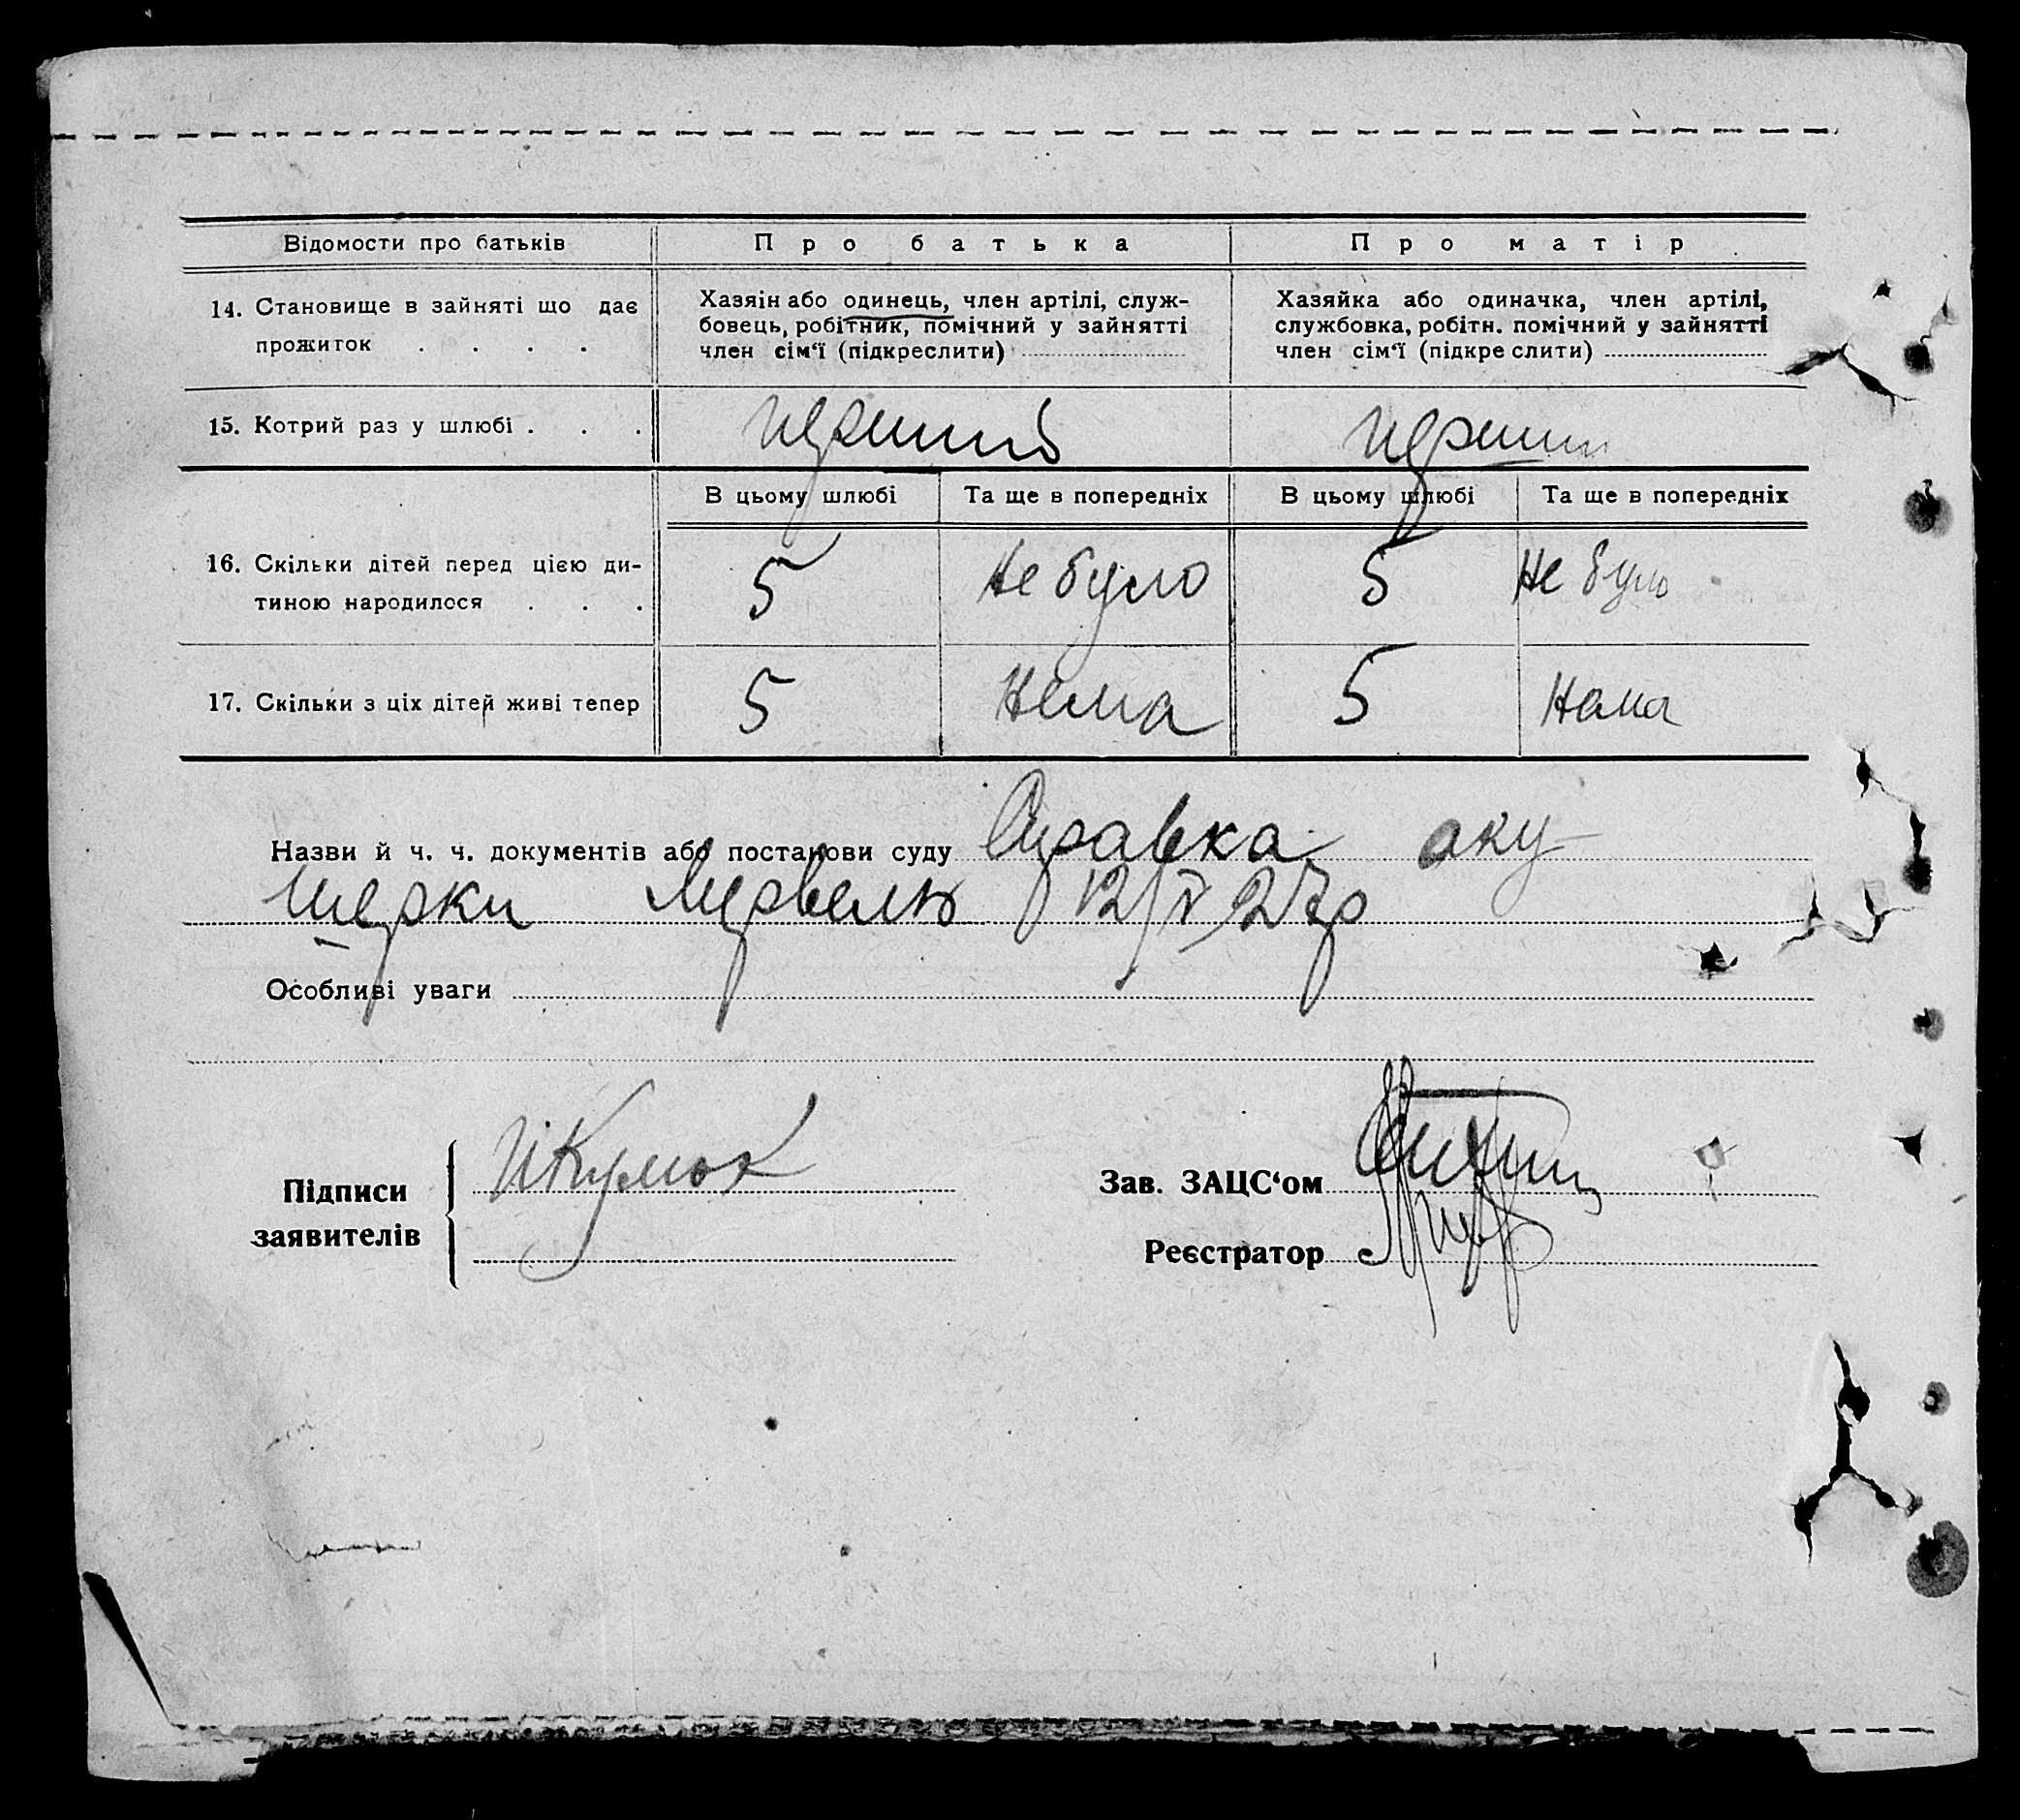 Відомости про батьків
Про батька
Про матір
14. Становище в зайняті що дає
прожиток . . . .
Хазяїн або одинець, член артілі, служ-
бовець, робітник, помічний у зайнятті
член сім‘ї (підкреслити)
Хазяйка або одиначка, член артілі,
службовка, робітн. помічний у зайнятті
член сім‘ї (підкреслити)
15. Котрий раз у шлюбі . . .
перший
перший
В цьому шлюбі
Та ще в попередніх
В цьому шлюбі
Та ще в попередніх
16. Скільки дітей перед цією ди-
тиною народилося . . .
5
не було
5
не було
17. Скільки з ціх дітей живі тепер
5
нема
5
нема
Назви й ч. ч. документів або постанови суду Справка аку
шерки 12/V 27р
Особливі уваги
Підписи
заявителів
Зав. ЗАЦС‘ом
Реєстратор